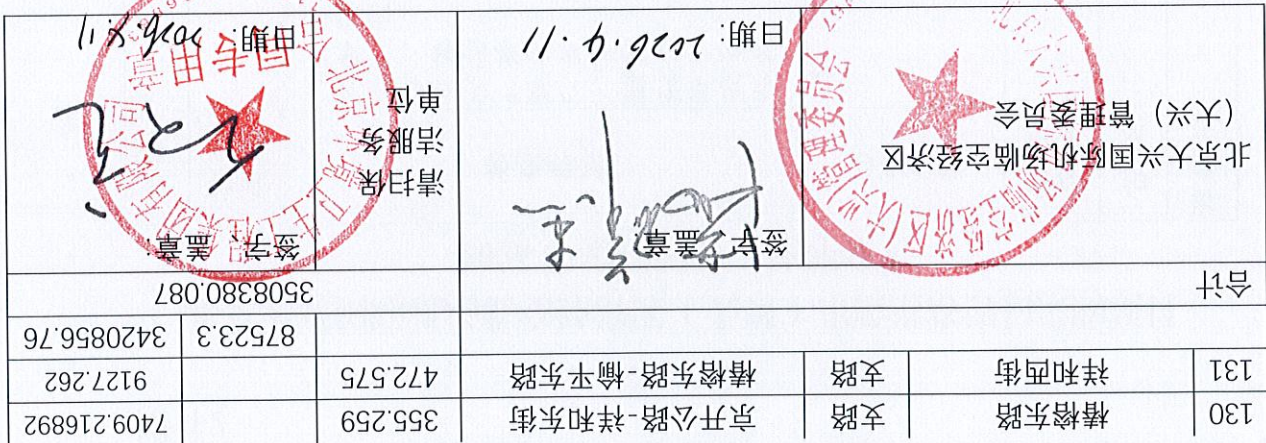 130 椿榕东路 支路 京开公路-祥和东街 355.259 7409.216892
131 祥和西街 支路 椿榕东路-榆平东路 472.575 9127.262
87523.3 3420856.76
合计 3508380.087
北京大兴国际机场临空经济区
（大兴）管理委员会
签字、盖章
日期:
清扫保
洁服务
单位
签字、盖章:
日期: